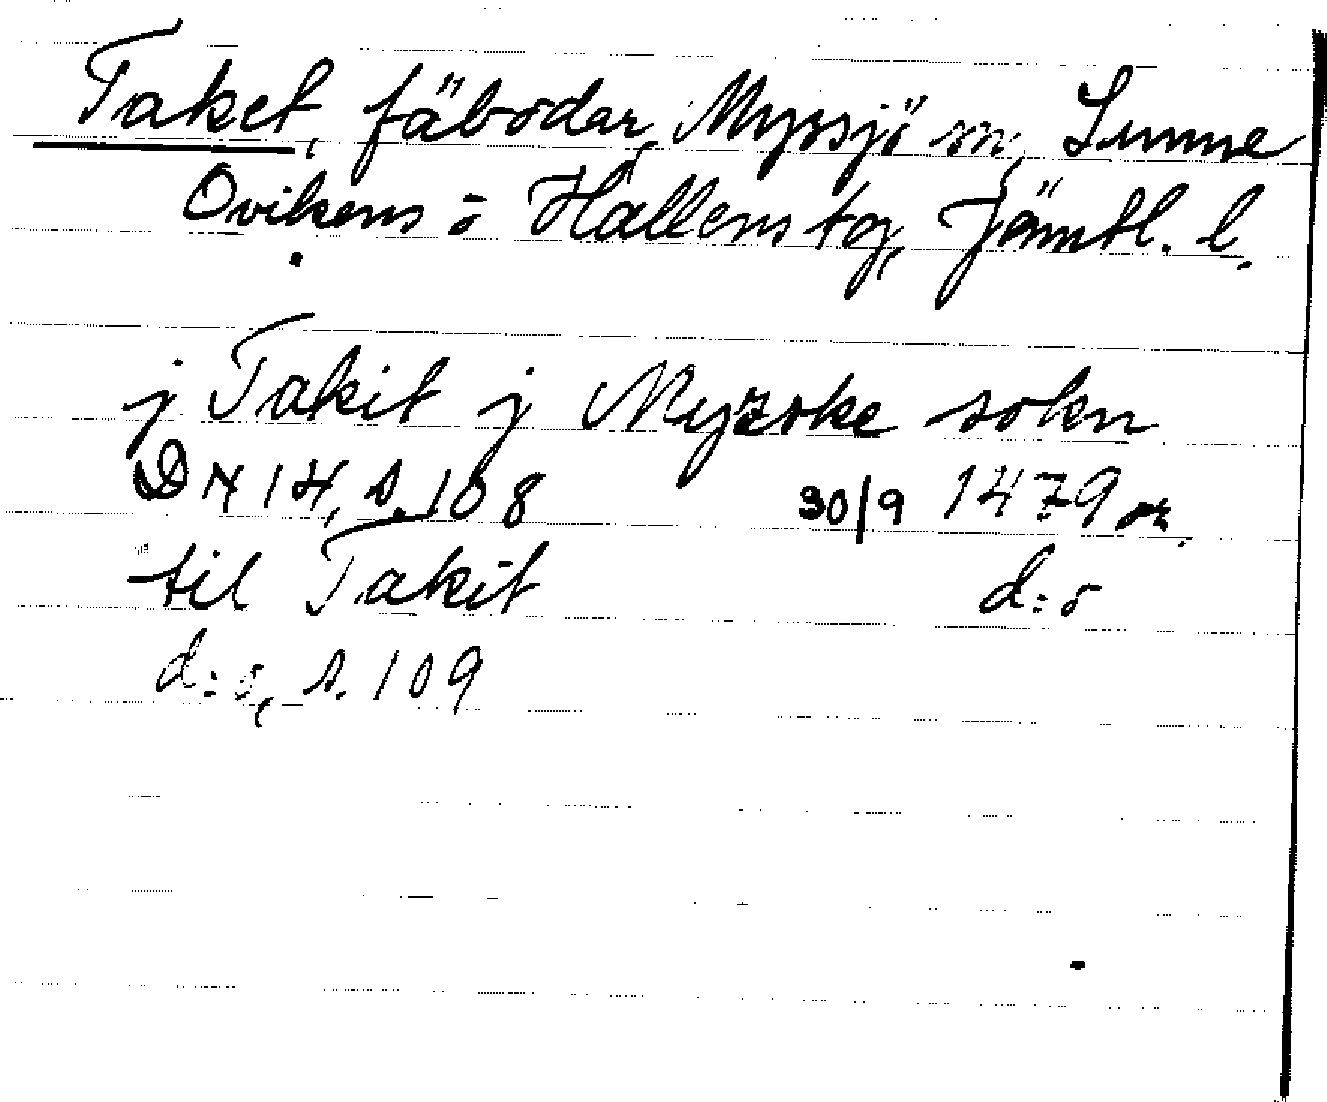 Taket, fäbodar, Myssjö sn, Sunne
Ovikens o Hallens tg, Jämtl. l.
j Takit j Myzske sokn
DN 14, s. 108 30/9 1479 or.
til Takit d:o
d:o, s. 109